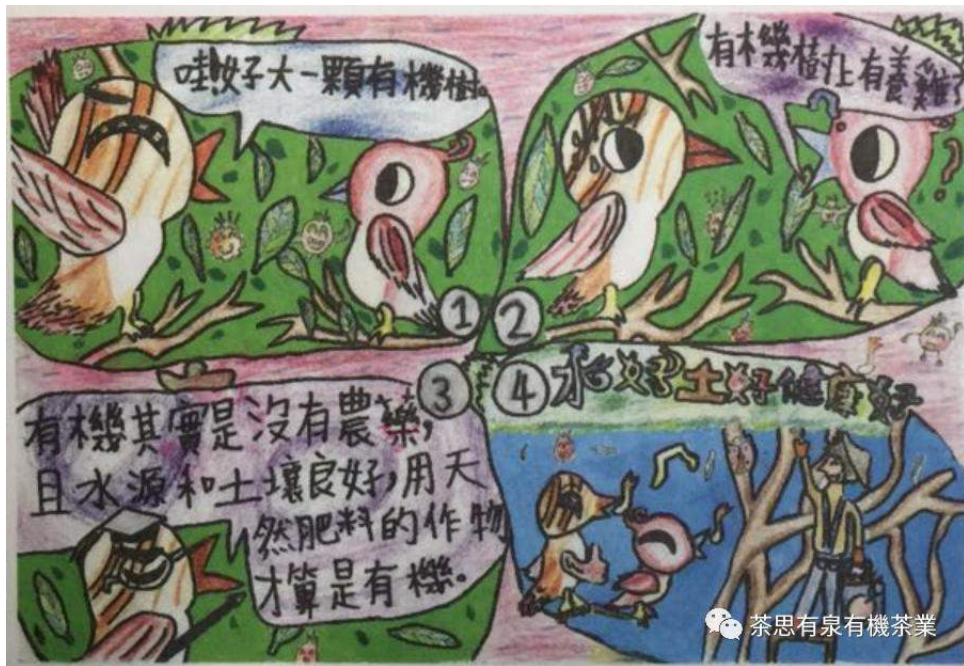 哇!好大一顆有機樹。
①
有機樹上有養雞?
②
③
有機其實是沒有農藥,
且水源和土壤良好,用天
然肥料的作物
才算是有機。
④
水好土好健康好
茶思有泉有機茶業